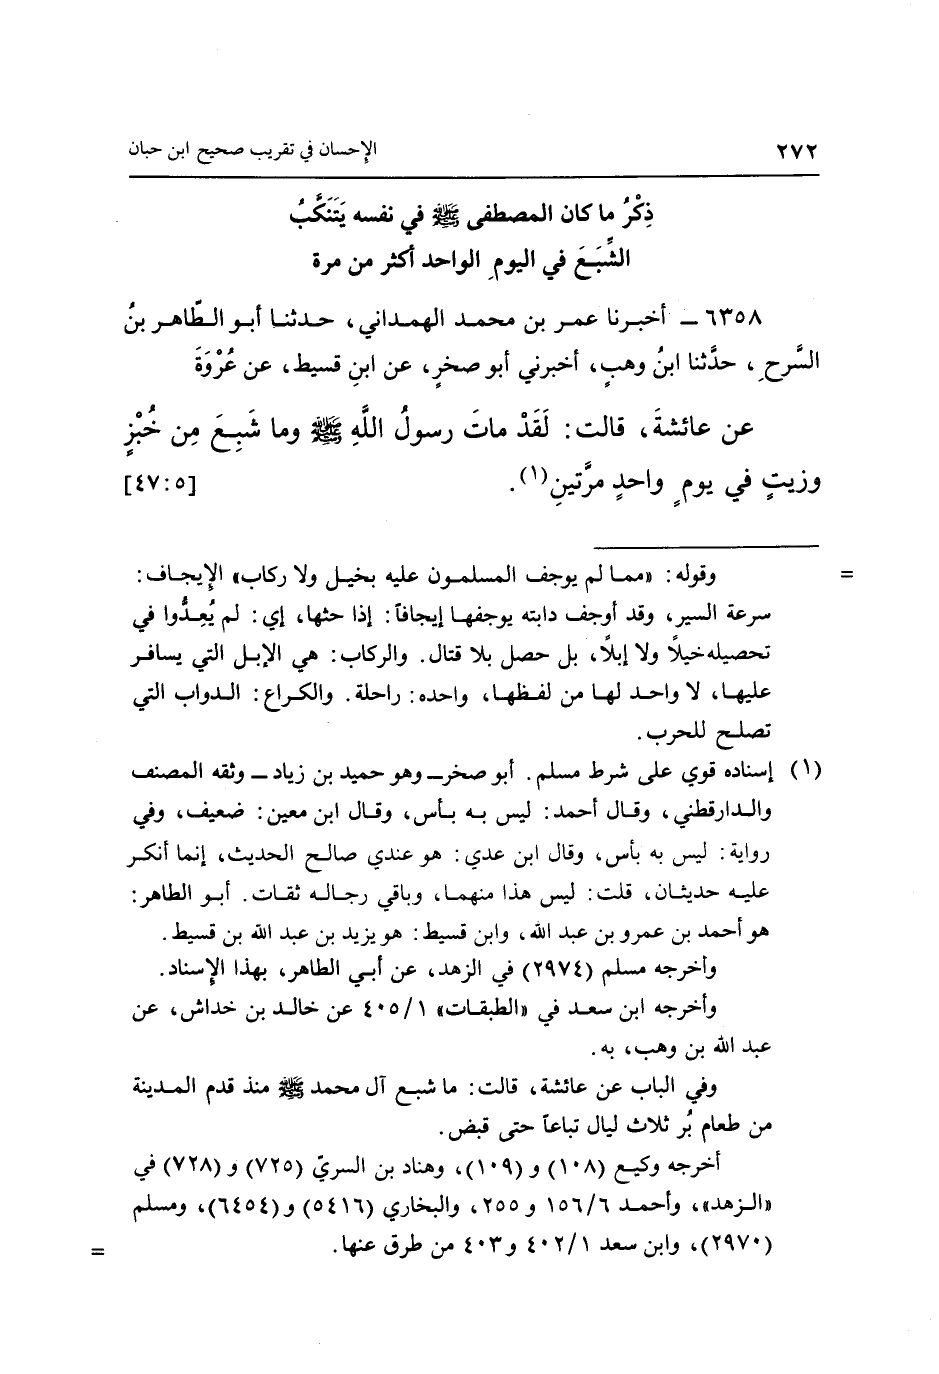 ٢٧٢ الإحسان في تقريب صحيح ابن حبان
ذِكْرُ ما كان المصطفى ﷺ في نفسه يَتَنَكَّبُ
الشِّبَعَ في اليومِ الواحد أكثر من مرة
٦٣٥٨ ــ أخبرنا عمر بن محمد الهمداني، حدثنا أبو الطّاهر بنُ
السَّرحِ، حدَّثنا ابنُ وهبٍ، أخبرني أبو صخرٍ، عن ابنِ قسيط، عن عُرْوَةَ
عن عائشةَ، قالت: لَقَدْ ماتَ رسولُ اللَّهِ ﷺ وما شَبِعَ مِن خُبْزٍ
وزيتٍ في يومٍ واحدٍ مرَّتينِ(١). [٤٧:٥]
= وقوله: «مما لم يوجف المسلمون عليه بخيل ولا ركاب» الإيجاف:
سرعة السير، وقد أوجف دابته يوجفها إيجافاً: إذا حثها، إي: لم يُعِدُّوا في
تحصيله خيلًا ولا إبلًا، بل حصل بلا قتال. والركاب: هي الإبل التي يسافر
عليها، لا واحد لها من لفظها، واحده: راحلة. والكراع: الدواب التي
تصلح للحرب.
(١) إسناده قوي على شرط مسلم. أبو صخر ــ وهو حميد بن زياد ــ وثقه المصنف
والدارقطني، وقال أحمد: ليس به بأس، وقال ابن معين: ضعيف، وفي
رواية: ليس به بأس، وقال ابن عدي: هو عندي صالح الحديث، إنما أنكر
عليه حديثان، قلت: ليس هذا منهما، وباقي رجاله ثقات. أبو الطاهر:
هو أحمد بن عمرو بن عبد الله، وابن قسيط: هو يزيد بن عبد الله بن قسيط.
وأخرجه مسلم (٢٩٧٤) في الزهد، عن أبي الطاهر، بهذا الإسناد.
وأخرجه ابن سعد في «الطبقات» ٤٠٥/١ عن خالد بن خداش، عن
عبد الله بن وهب، به.
وفي الباب عن عائشة، قالت: ما شبع آل محمد ﷺ منذ قدم المدينة
من طعام بُر ثلاث ليال تباعاً حتى قبض.
أخرجه وكيع (١٠٨) و (١٠٩)، وهناد بن السريّ (٧٢٥) و (٧٢٨) في
«الزهد»، وأحمد ١٥٦/٦ و ٢٥٥، والبخاري (٥٤١٦) و (٦٤٥٤)، ومسلم
(٢٩٧٠)، وابن سعد ٤٠٢/١ و ٤٠٣ من طرق عنها. =